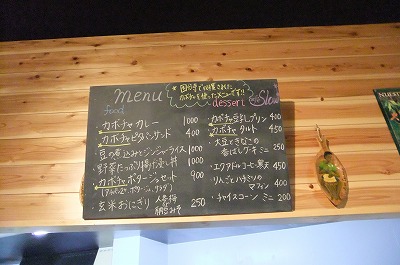 menu
food
*国分寺で収穫された
カボチャを使ったメニューです!!
dessert
Slow
・カボチャ カレー 1000
・カボチャ ピタパンサンド 400
・豆の煮込みとジンジャーライス 1000
・野菜たっぷり揚げ出し丼 1000
・カボチャ ポタージュセット 900
・玄米おにぎり 250
・カボチャ豆乳プリン 400
・カボチャ タルト 450
・大豆ときなこの
香ばしケーキ ミニ 200
・エクアドルコーヒー寒天 450
・りんごとハチミツの
マフィン 400
・チャイスコーン ミニ 200